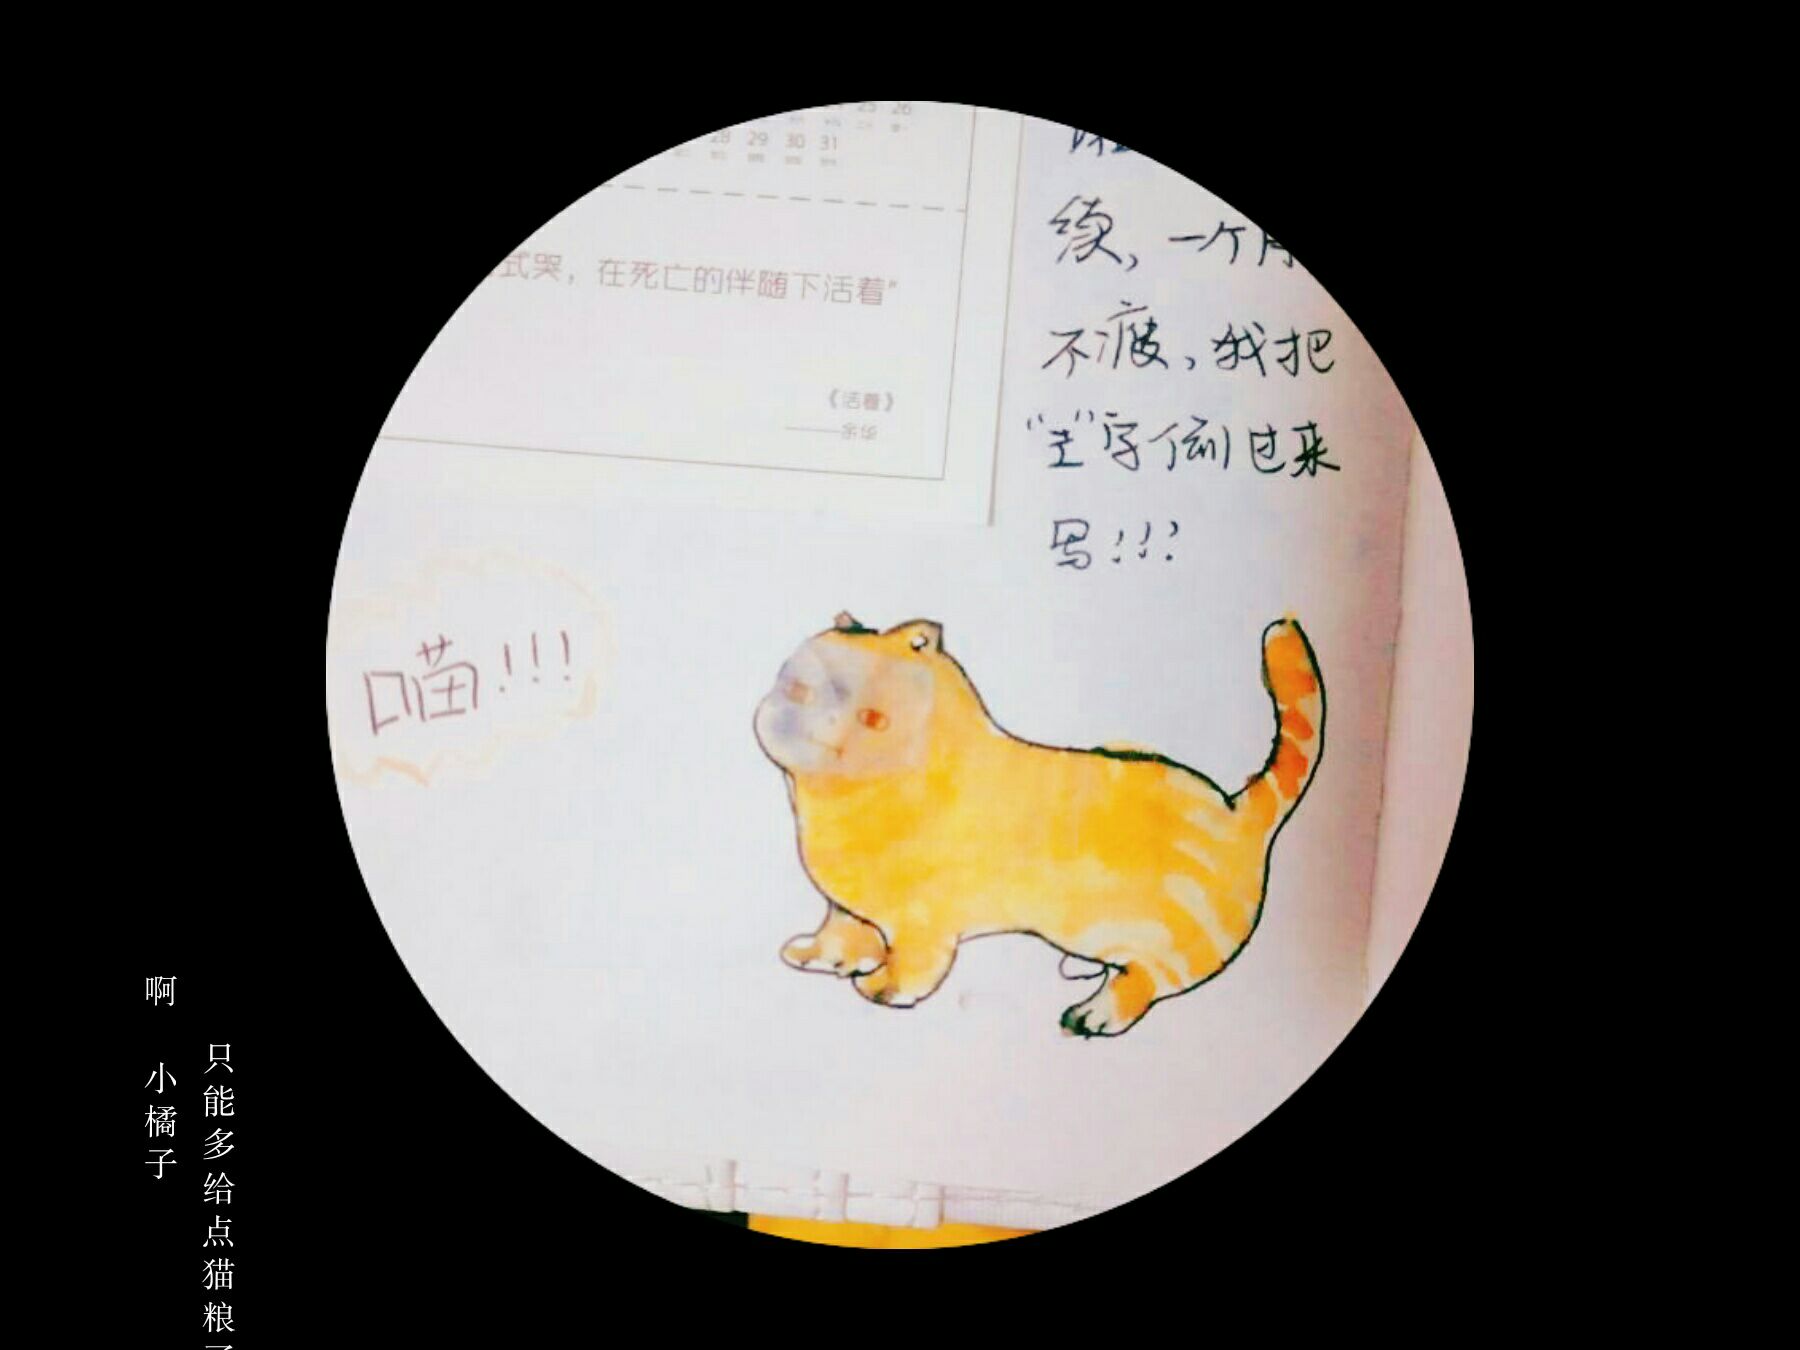 25 26
28 29 30 31
式哭，在死亡的伴随下活着”
《活着》
——余华
续，一个月
不瘦，我把
“王”字倒过来
写！！！
喵！！！
啊 小橘子
只能多给点猫粮了